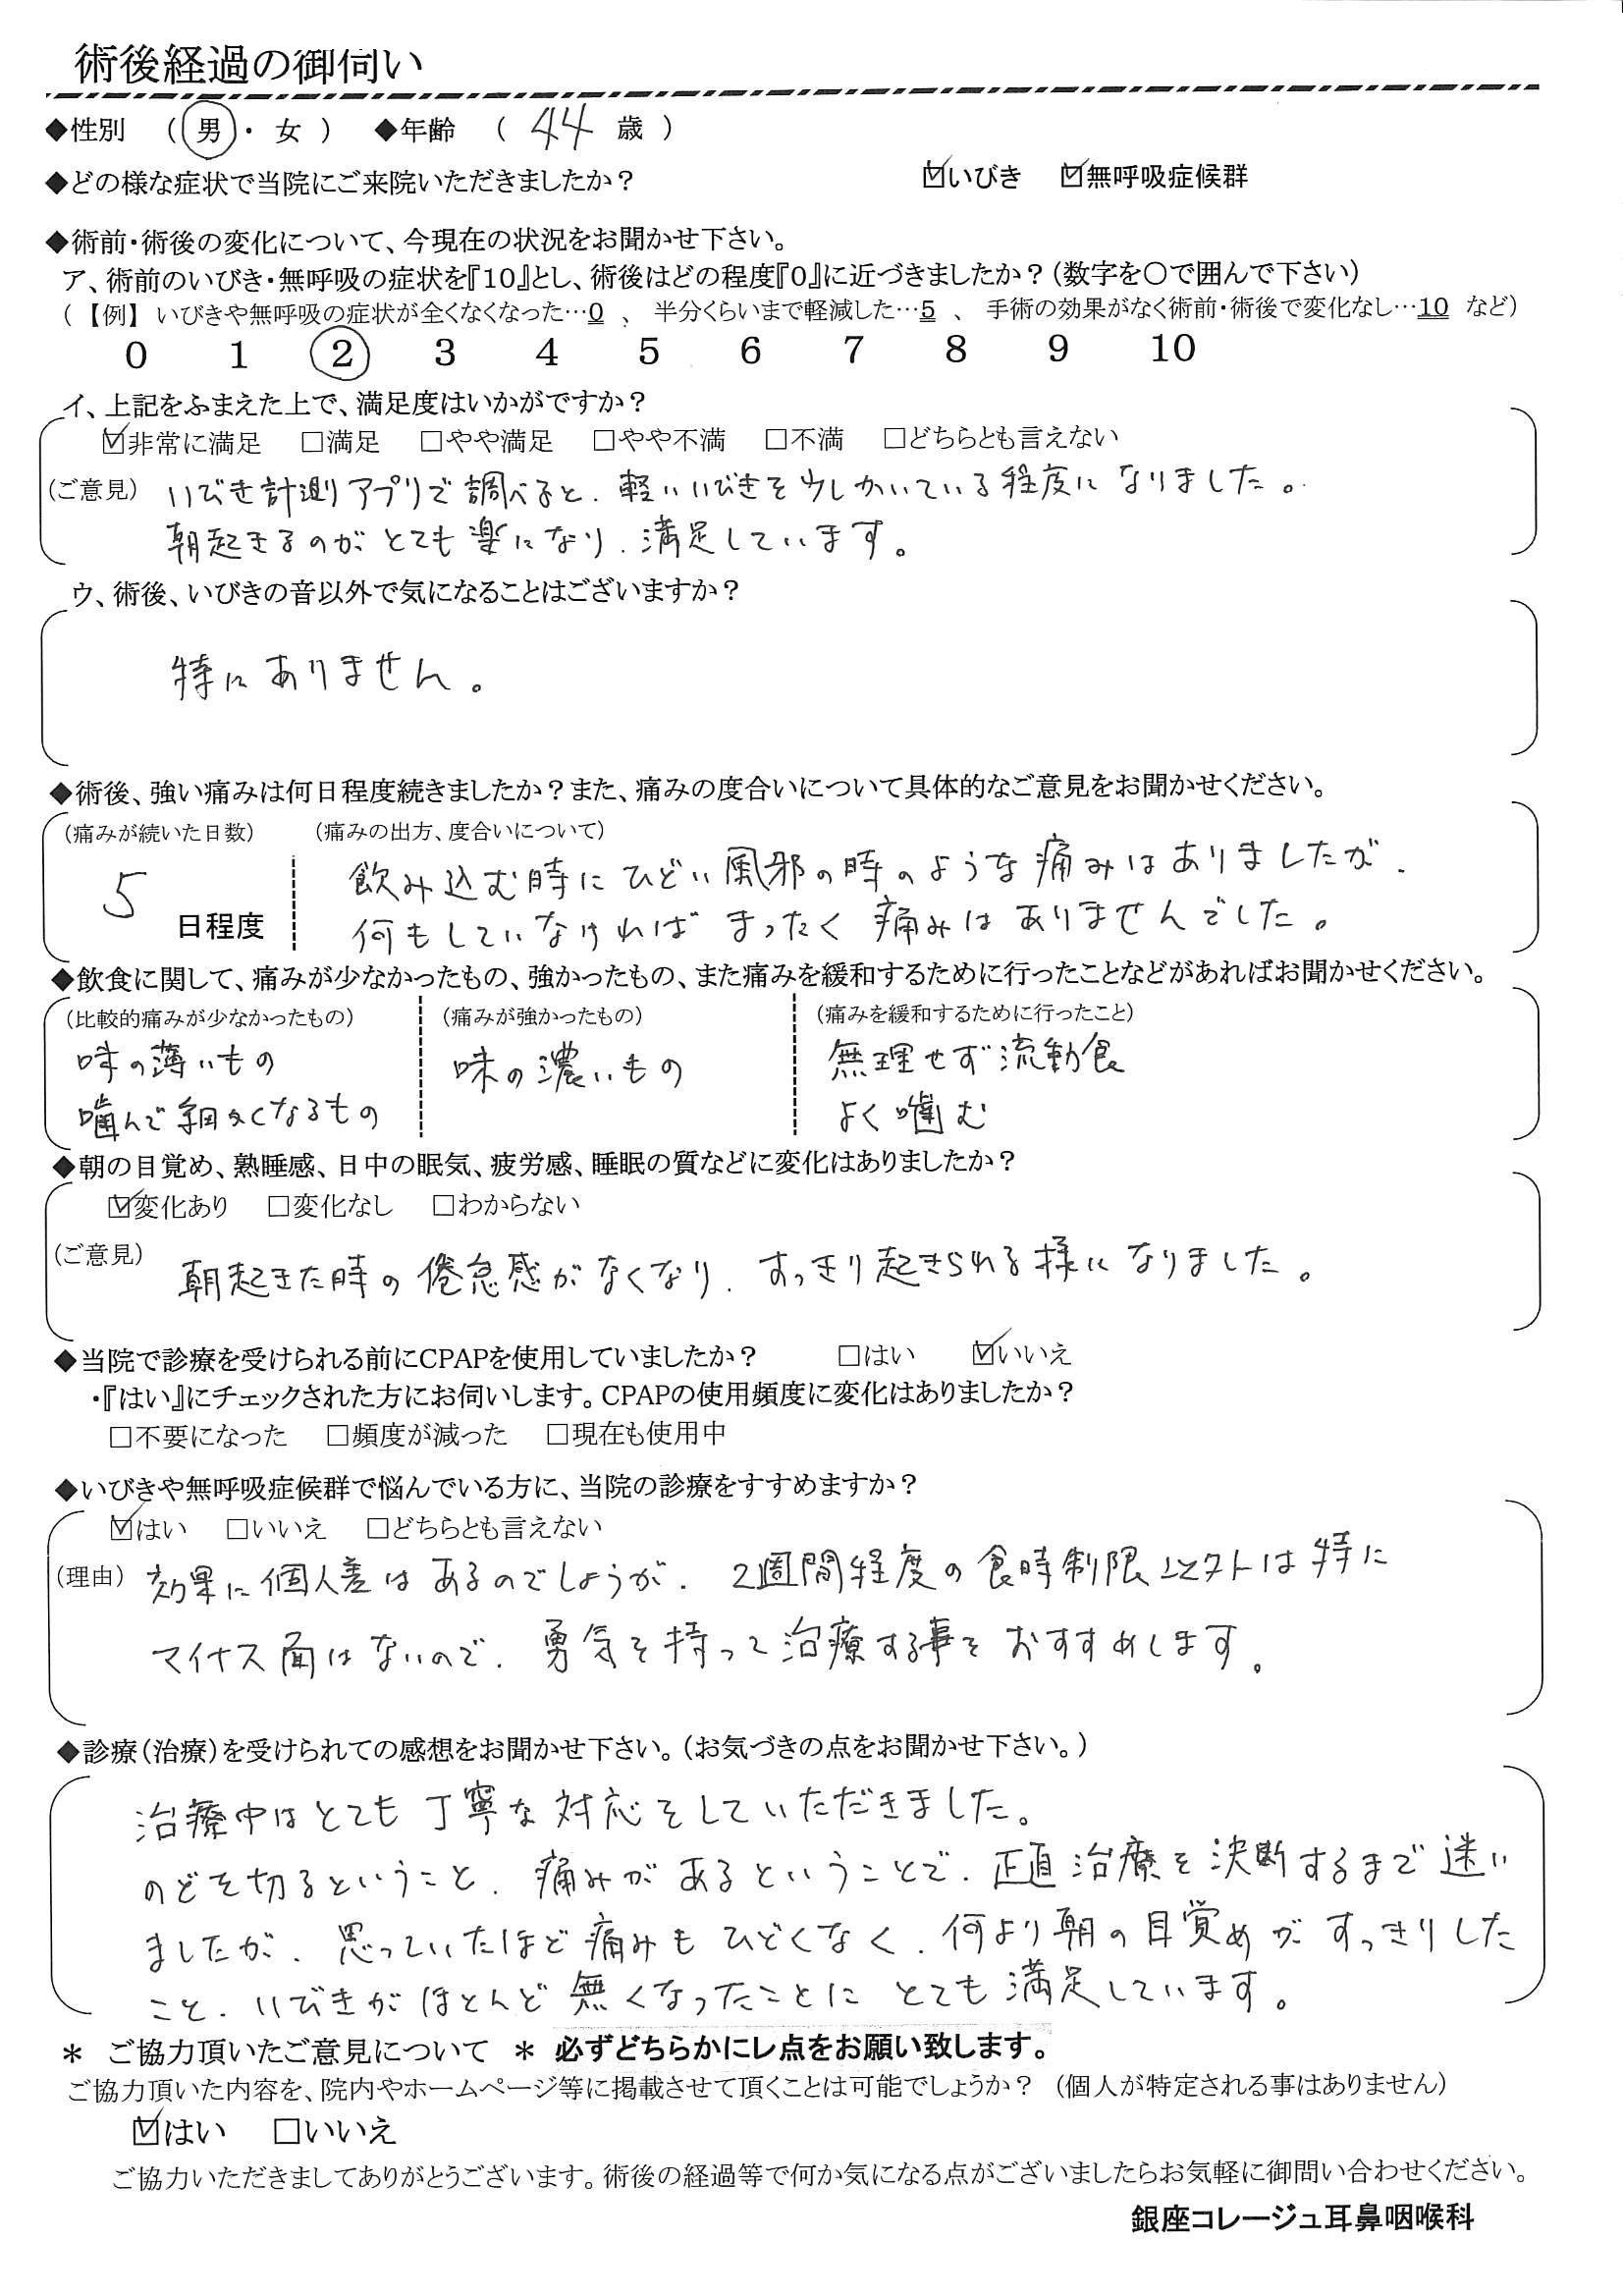 術後経過の御伺い
◆性別 （ 男 ・ 女 ） ◆年齢 （ 44 歳 ）
◆どの様な症状で当院にご来院いただきましたか？ ☑いびき ☑無呼吸症候群
◆術前・術後の変化について、今現在の状況をお聞かせ下さい。
ア、術前のいびき・無呼吸の症状を『10』とし、術後はどの程度『0』に近づきましたか？（数字を〇で囲んで下さい）
（ 【例】 いびきや無呼吸の症状が全くなくなった…0 、 半分くらいまで軽減した…5 、 手術の効果がなく術前・術後で変化なし…10 など）
0 1 2 3 4 5 6 7 8 9 10
イ、上記をふまえた上で、満足度はいかがですか？
☑非常に満足 □満足 □やや満足 □やや不満 □不満 □どちらとも言えない
（ご意見） いびき計測アプリで調べると、軽いいびきを少しかいている程度になりました。
朝起きるのがとても楽になり、満足しています。
ウ、術後、いびきの音以外で気になることはございますか？
特にありません。
◆術後、強い痛みは何日程度続きましたか？また、痛みの度合いについて具体的なご意見をお聞かせください。
（痛みが続いた日数） （痛みの出方、度合いについて）
飲み込む時にひどい風邪の時のような痛みはありましたが、
5 日程度 何もしていなければまったく痛みはありませんでした。
◆飲食に関して、痛みが少なかったもの、強かったもの、また痛みを緩和するために行ったことなどがあればお聞かせください。
（比較的痛みが少なかったもの） （痛みが強かったもの） （痛みを緩和するために行ったこと）
味の薄いもの 味の濃いもの 無理せず流動食
噛んで細かくなるもの よく噛む
◆朝の目覚め、熟睡感、日中の眠気、疲労感、睡眠の質などに変化はありましたか？
☑変化あり □変化なし □わからない
（ご意見） 朝起きた時の倦怠感がなくなり、すっきり起きられる様になりました。
◆当院で診療を受けられる前にCPAPを使用していましたか？ □はい ☑いいえ
・『はい』にチェックされた方にお伺いします。CPAPの使用頻度に変化はありましたか？
□不要になった □頻度が減った □現在も使用中
◆いびきや無呼吸症候群で悩んでいる方に、当院の診療をすすめますか？
☑はい □いいえ □どちらとも言えない
（理由） 効果に個人差はあるのでしょうが、2週間程度の食時制限以外は特に
マイナス面はないので、勇気を持って治療する事をおすすめします。
◆診療（治療）を受けられての感想をお聞かせ下さい。（お気づきの点をお聞かせ下さい。）
治療中はとても丁寧な対応をしていただきました。
のどを切るということ、痛みがあるということで、正直治療を決断するまで迷い
ましたが、思っていたほど痛みもひどくなく、何より朝の目覚めがすっきりした
こと、いびきがほとんど無くなったことにとても満足しています。
＊ ご協力頂いたご意見について ＊ 必ずどちらかにレ点をお願い致します。
ご協力頂いた内容を、院内やホームページ等に掲載させて頂くことは可能でしょうか？ （個人が特定される事はありません）
☑はい □いいえ
ご協力いただきましてありがとうございます。術後の経過等で何か気になる点がございましたらお気軽に御問い合わせください。
銀座コレージュ耳鼻咽喉科